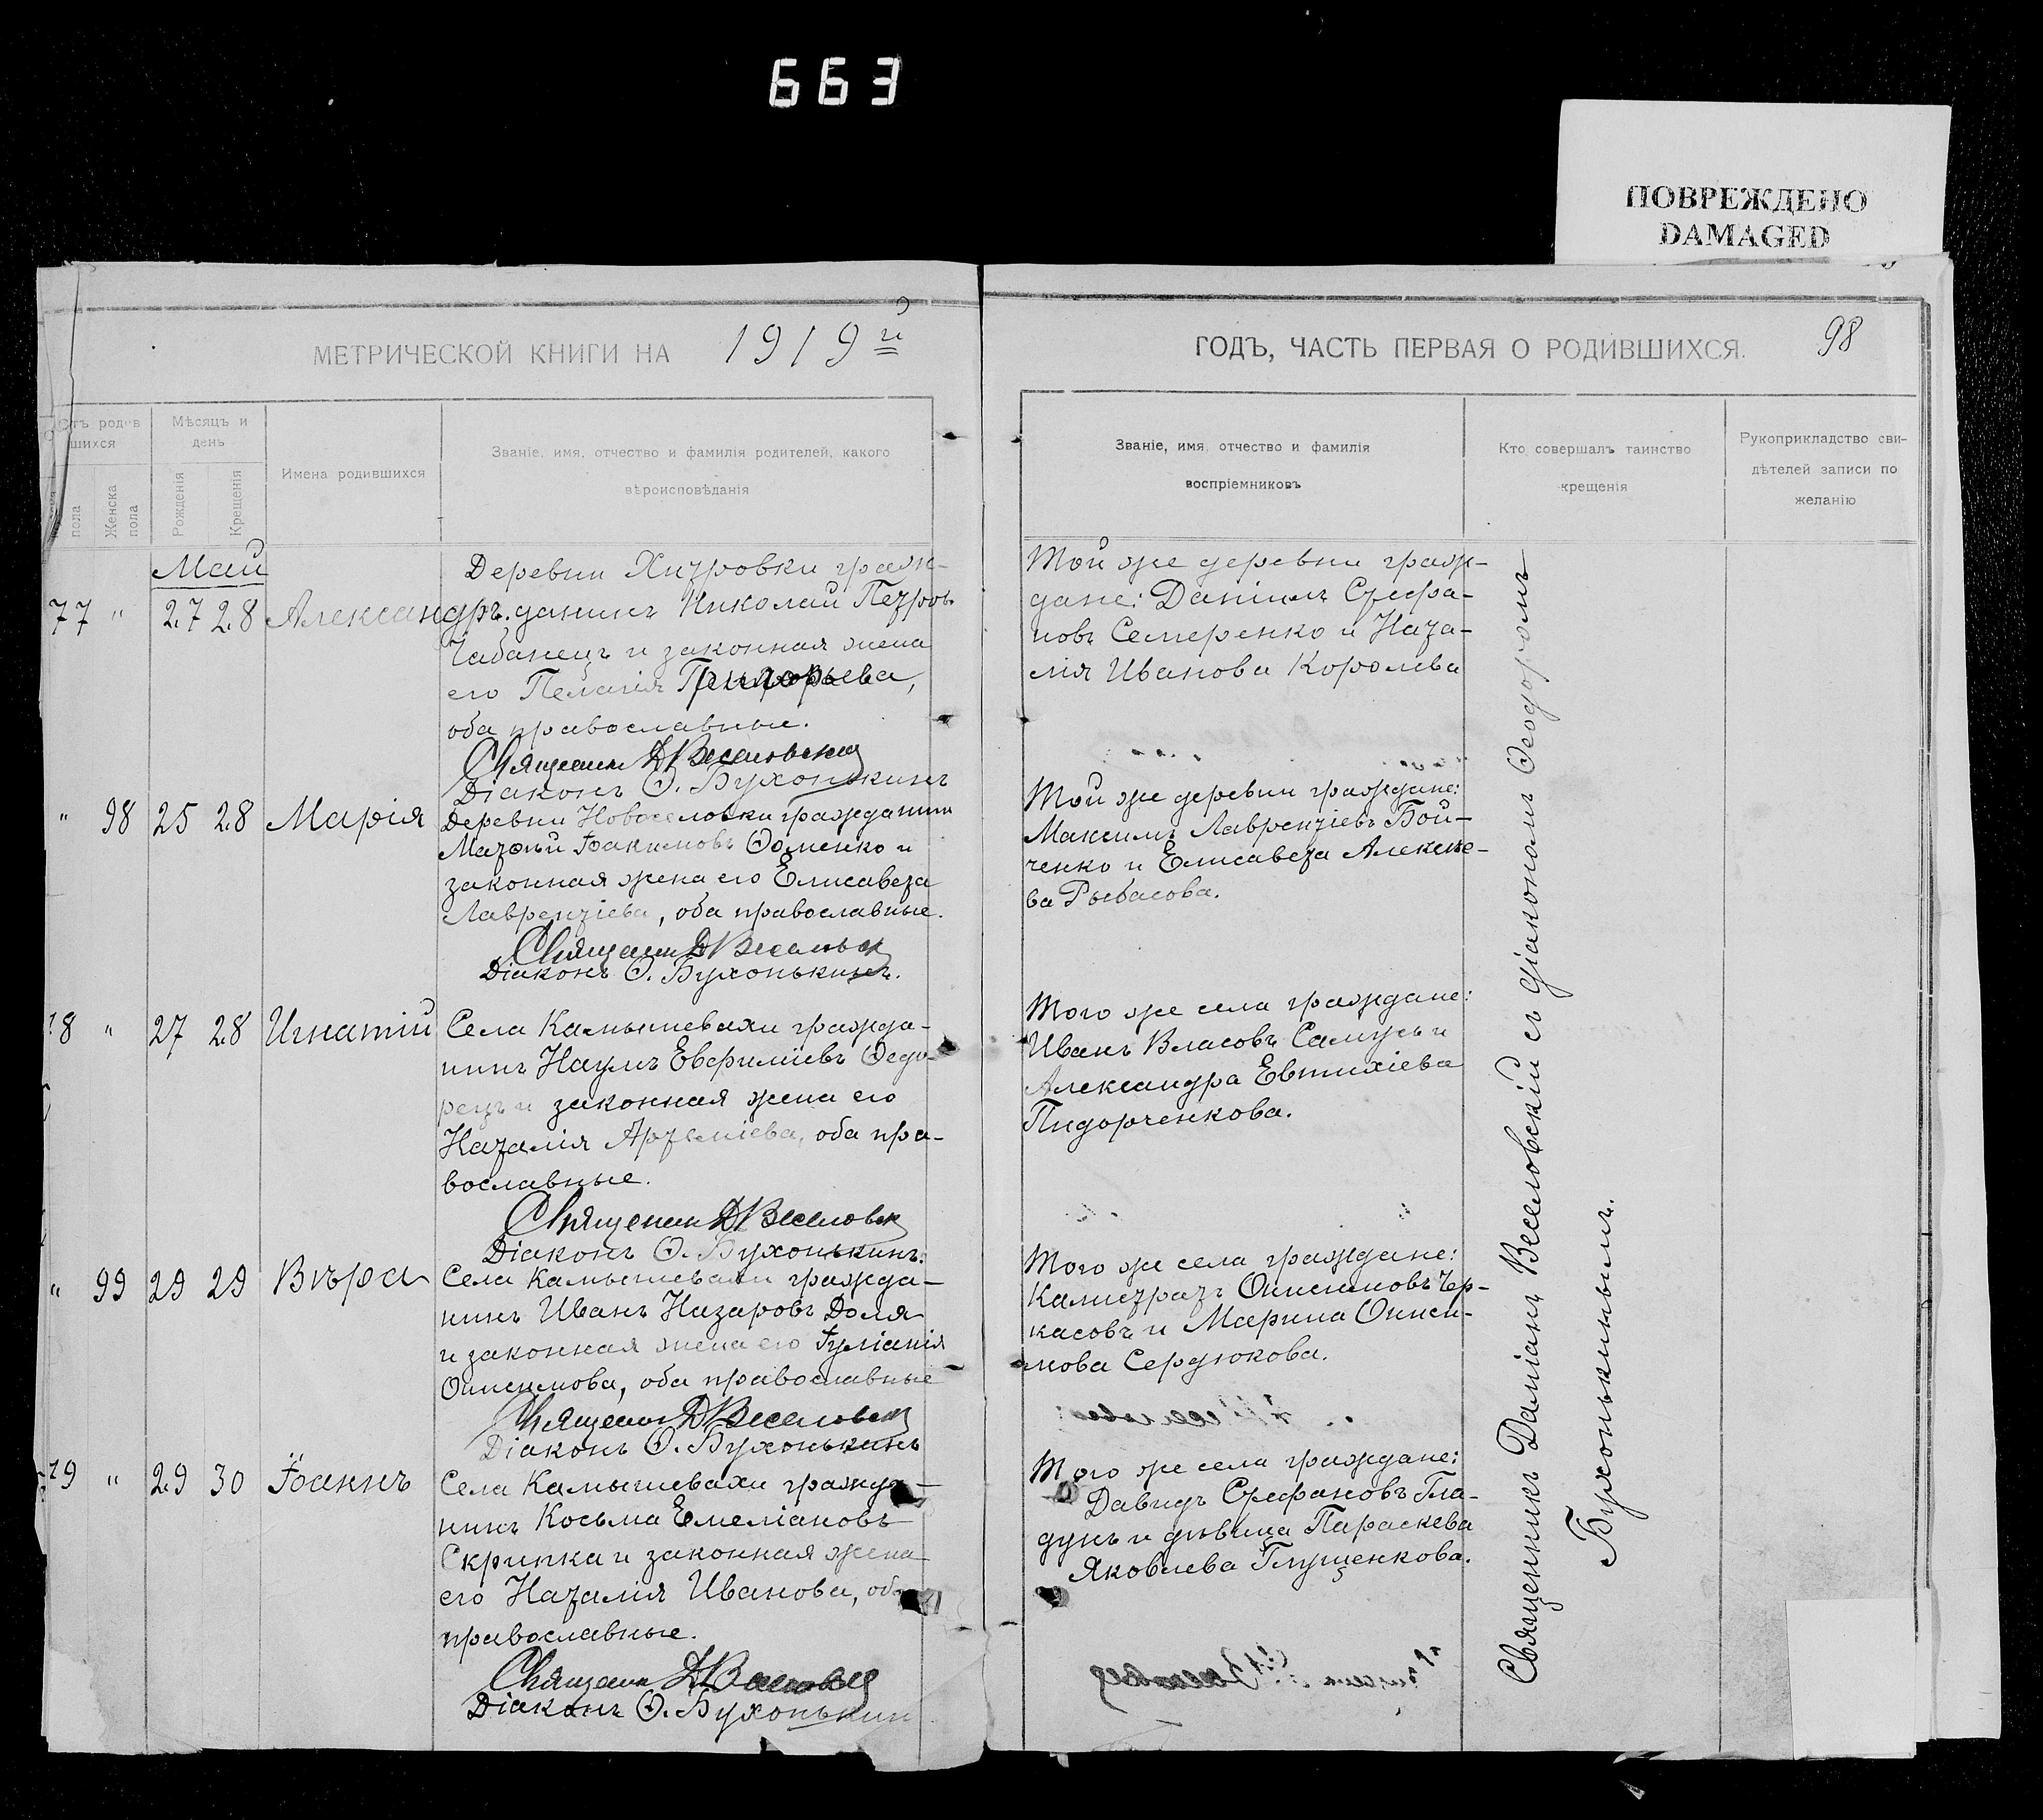 663
ПОВРЕЖДЕНО
DAMAGED
МЕТРИЧЕСКОЙ КНИГИ НА 1919й
ГОДЪ, ЧАСТЬ ПЕРВАЯ О РОДИВШИХСЯ.
98
родив
шихся
пола
Женска
пола
Мѣсяцъ и
день
Рожденія
Крещенія
Имена родившихся
Званіе, имя, отчество и фамилія родителей, какого
вѣроисповѣданія
Званіе, имя, отчество и фамилія
воспріемниковъ
Кто совершалъ таинство
крещенія
Рукоприкладство сви-
дѣтелей записи по
желанію
Май
77 " 27 28 Александръ.
Деревни Хитровки граж-
данинъ Николай Петровъ
Чабанецъ и законная жена
его Пелагія Григорьева,
оба православные.
Священник Д Веселовский
Діаконъ Ѳ. Бухонькинъ
Той же деревни граж-
дане: Даніилъ Стефа-
новъ Семеренко и Ната-
лія Иванова Королева
" 98 25 28 Марія
Деревни Новоселовки гражданин
Матѳей Іоакимовъ Ѳоменко и
законная жена его Елисавета
Лаврентіева, оба православные.
Священник Д Веселовск
Діаконъ Ѳ. Бухонькинъ.
Той же деревни граждане:
Максимъ Лаврентіевъ Бой-
ченко и Елисавета Алексѣе-
ва Рыбасова.
78 " 27 28 Игнатій
Села Камышевахи гражда-
нинъ Наумъ Евфиміевъ Ѳедо-
рецъ и законная жена его
Наталія Артеміева, оба пра-
вославные.
Священник Д Веселовск
Діаконъ Ѳ. Бухонькинъ.
Того же села граждане:
Иванъ Власовъ Самусь и
Александра Евтихіева
Пидорченкова.
" 99 29 29 Вѣра
Села Камышевахи гражда-
нинъ Иванъ Назаровъ Доля
и законная жена его Іуліанія
Онисимова, оба православные
Священник Д Веселовск
Діаконъ Ѳ. Бухонькинъ
Того же села граждане:
Калистратъ Онисимовъ Чер-
касовъ и Марина Ониси-
мова Сердюкова.
79 " 29 30 Іоаннъ
Села Камышевахи гражда-
нинъ Косьма Емеліановъ
Скрипка и законная жена
его Наталія Иванова, оба
православные.
Священник Д Веселовск
Діаконъ Ѳ. Бухонькин
Того же села граждане:
Давидъ Стефановъ Гла-
дунъ и дѣвица Параскева
Яковлева Глущенкова.
Священникъ Даміанъ Веселовскій съ діакономъ Ѳеодоромъ
Бухонькинымъ.